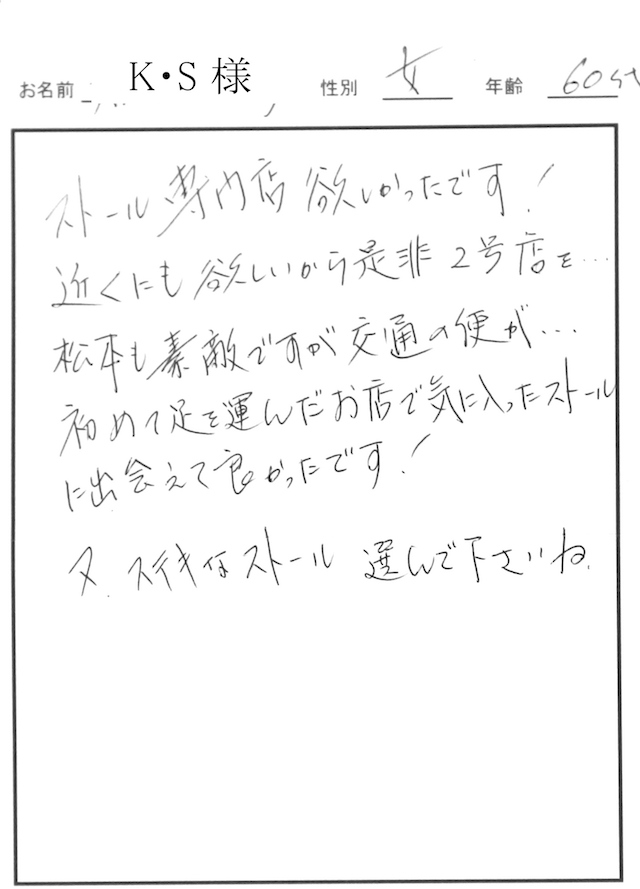 お名前 K・S 様 性別 女 年齢 60代
ストール専門店欲しかったです!
近くにも欲しいから是非2号店を…
松本も素敵ですが交通の便が…
初めて足を運んだお店で気に入ったストール
に出会えて良かったです!
又、ステキなストール 選んで下さいね.